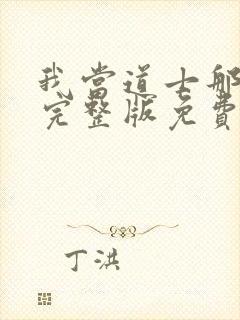 我当道士那
完整版免费
丁洪